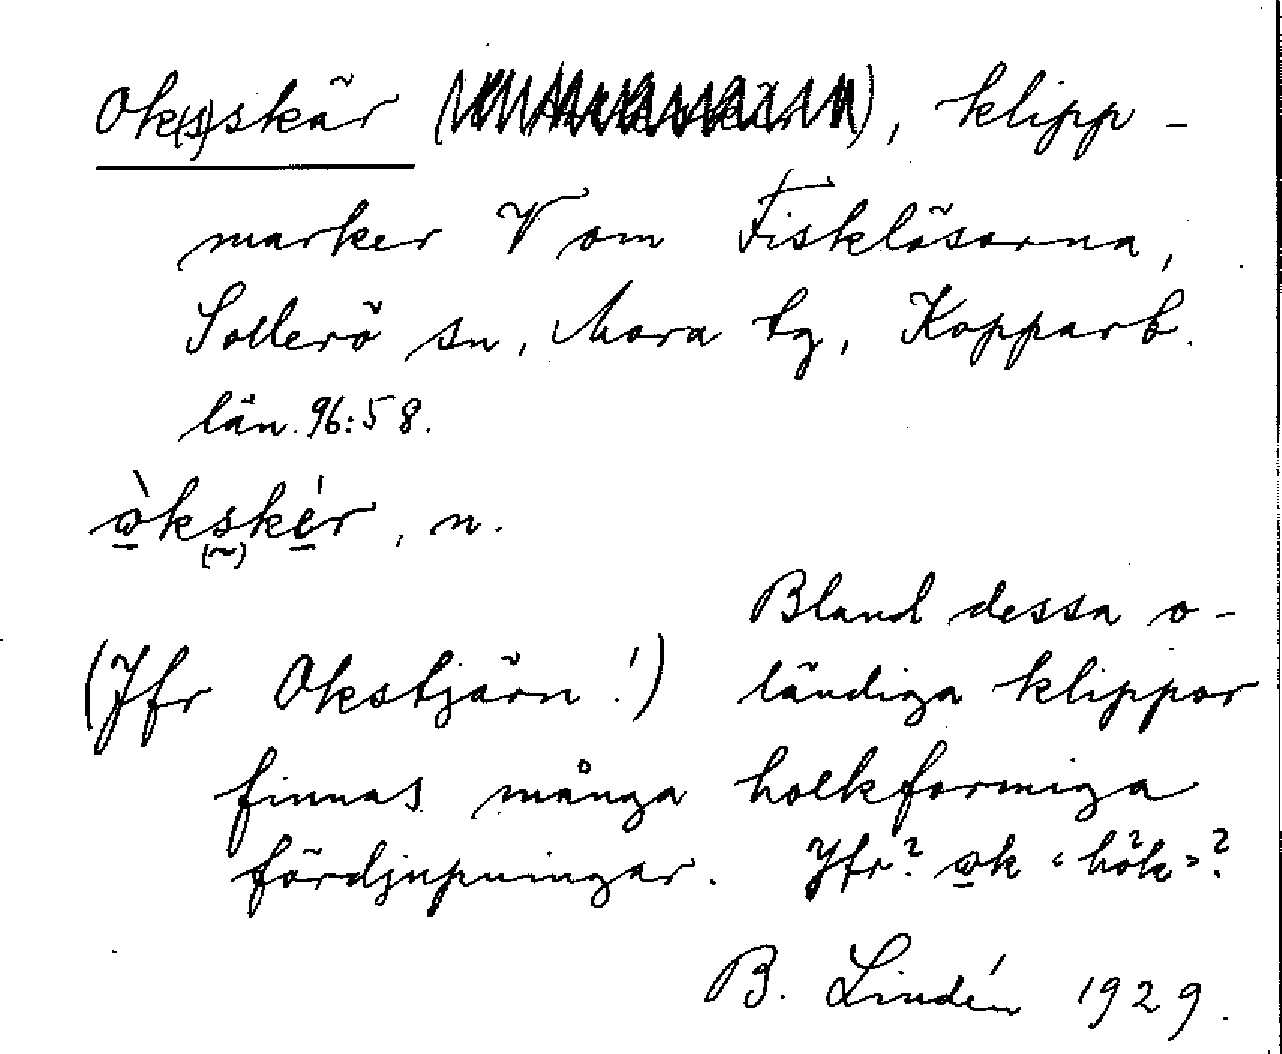 Ok(s)skär ( ), klipp-
marker V om Fisklösarna,
Sollerö sn, Mora tg, Kopparb.
län. 96:58.
ò̱kské̱r, n.
(~)
Bland dessa o-
(Jfr Okstjärn!) ländiga klippor
finnas många holkformiga
fördjupningar. Jfr? o̱k «hök»?
B. Lindén 1929.